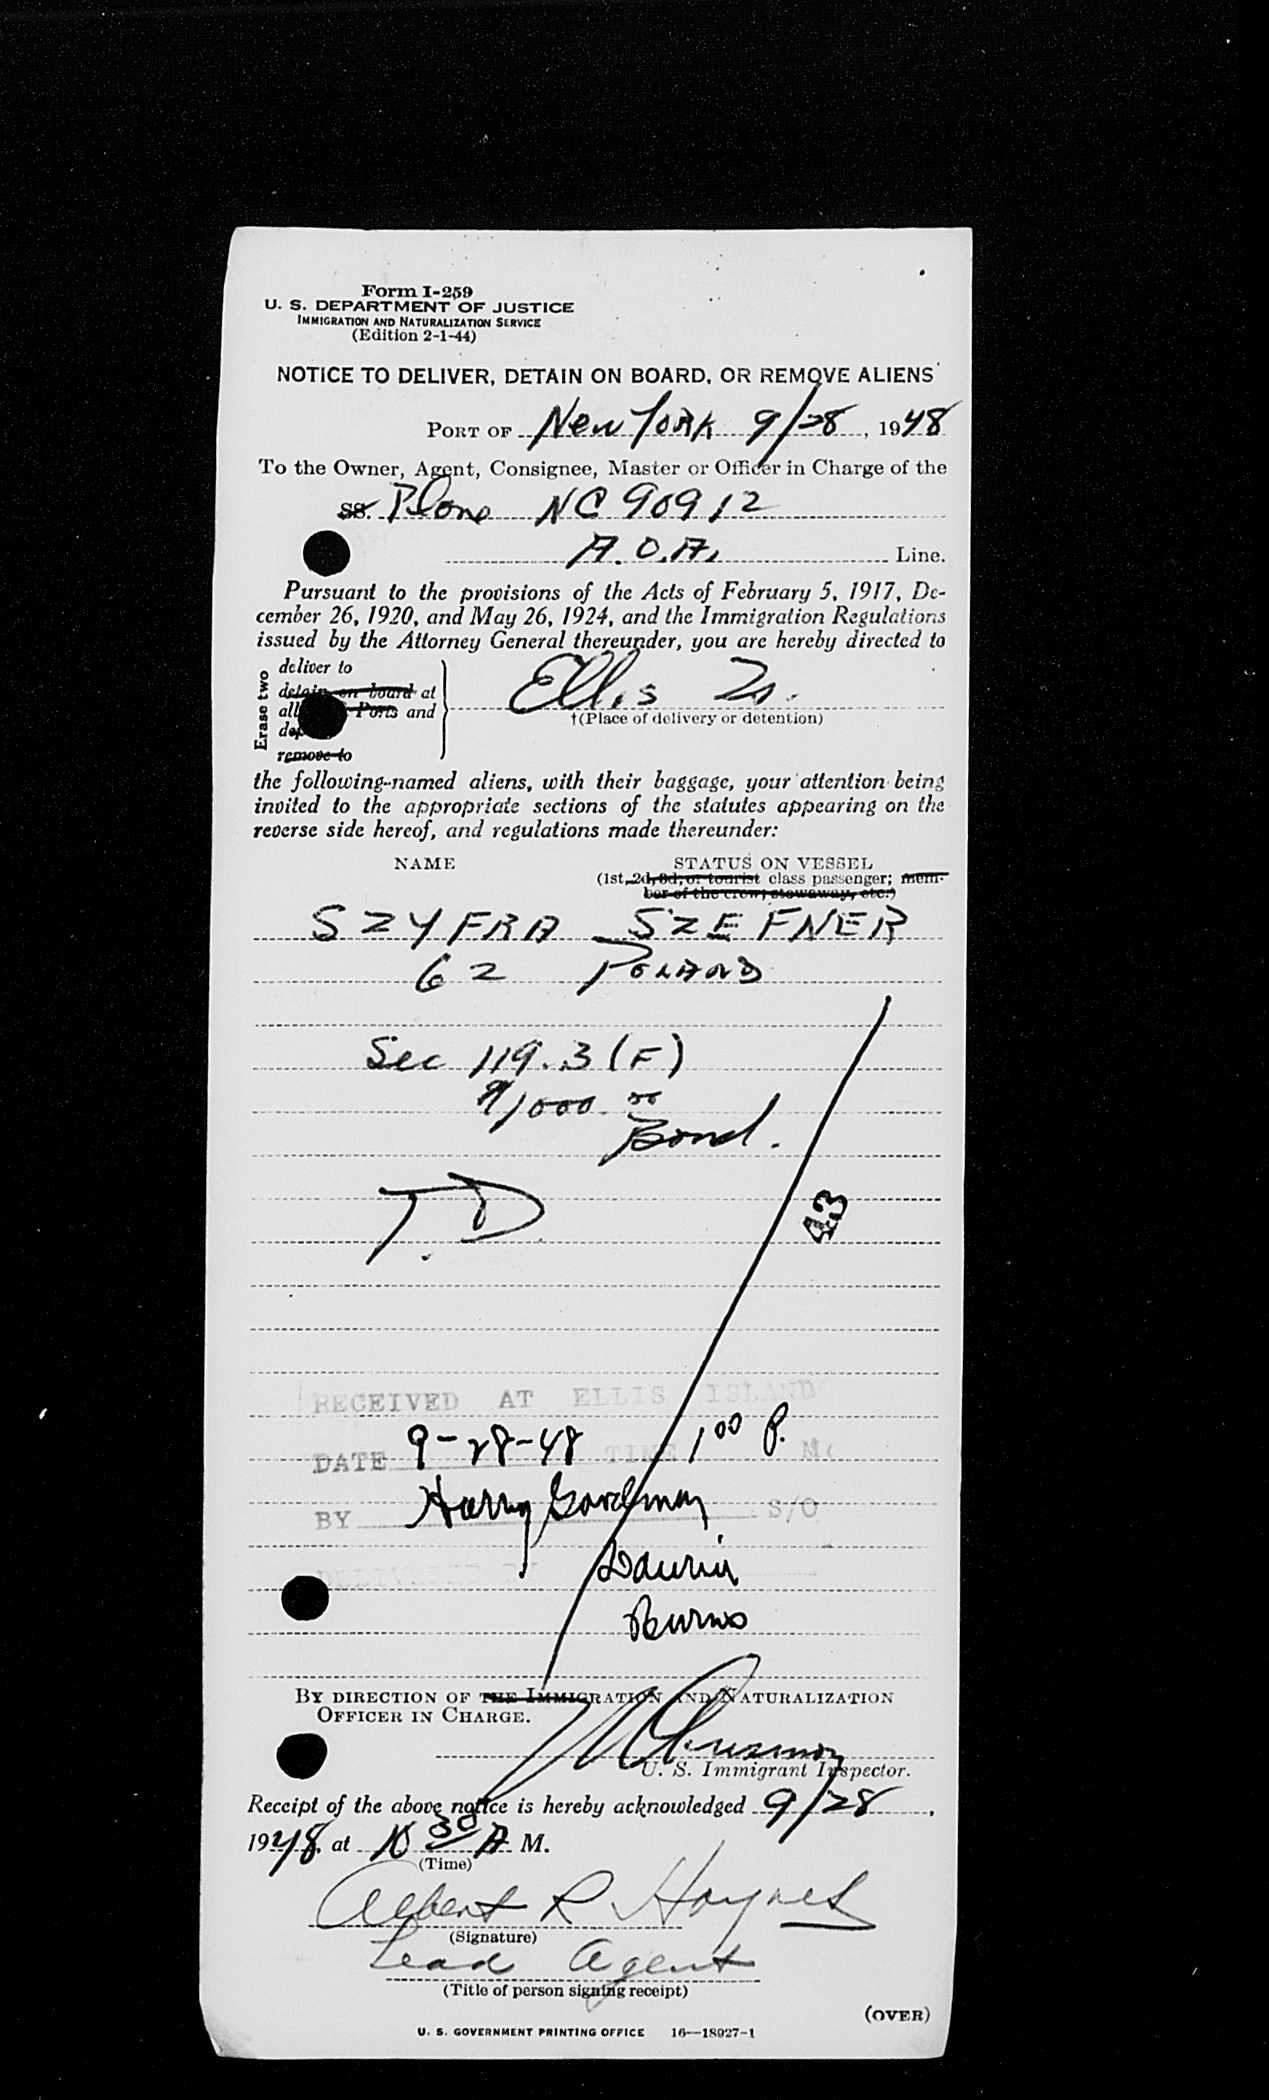 Form I-259
U. S. DEPARTMENT OF JUSTICE
IMMIGRATION AND NATURALIZATION SERVICE
(Edition 2-1-44)
NOTICE TO DELIVER, DETAIN ON BOARD, OR REMOVE ALIENS
PORT OF New York 9/28, 1948
To the Owner, Agent, Consignee, Master or Officer in Charge of the
SS. Plane NC 90912
A.O.A. Line.
Pursuant to the provisions of the Acts of February 5, 1917, De-
cember 26, 1920, and May 26, 1924, and the Immigration Regulations
issued by the Attorney General thereunder, you are hereby directed to
Erase two
deliver to
detain on board at
all Ports and
remove to
Ellis Is.
†(Place of delivery or detention)
the following-named aliens, with their baggage, your attention being
invited to the appropriate sections of the statutes appearing on the
reverse side hereof, and regulations made thereunder:
NAME STATUS ON VESSEL
(1st, 2d, 3d, or tourist class passenger; mem-
ber of the crew; stowaway, etc.)
SZYFRA SZEFNER
62 POLAND
Sec 119.3 (F)
$1000.00
Bond.
T.D.
43
RECEIVED AT ELLIS ISLAND
DATE 9-28-48 TIME 1 00 P. M.
BY Harry Goodman S/O
DELIVERED BY
Burns
BY DIRECTION OF THE IMMIGRATION AND NATURALIZATION
OFFICER IN CHARGE.
U. S. Immigrant Inspector.
Receipt of the above notice is hereby acknowledged 9/28,
1948, at 10 30 A M.
(Time)
Albert R Haynes
(Signature)
Lead Agent
(Title of person signing receipt)
(OVER)
U. S. GOVERNMENT PRINTING OFFICE 16—18927-1